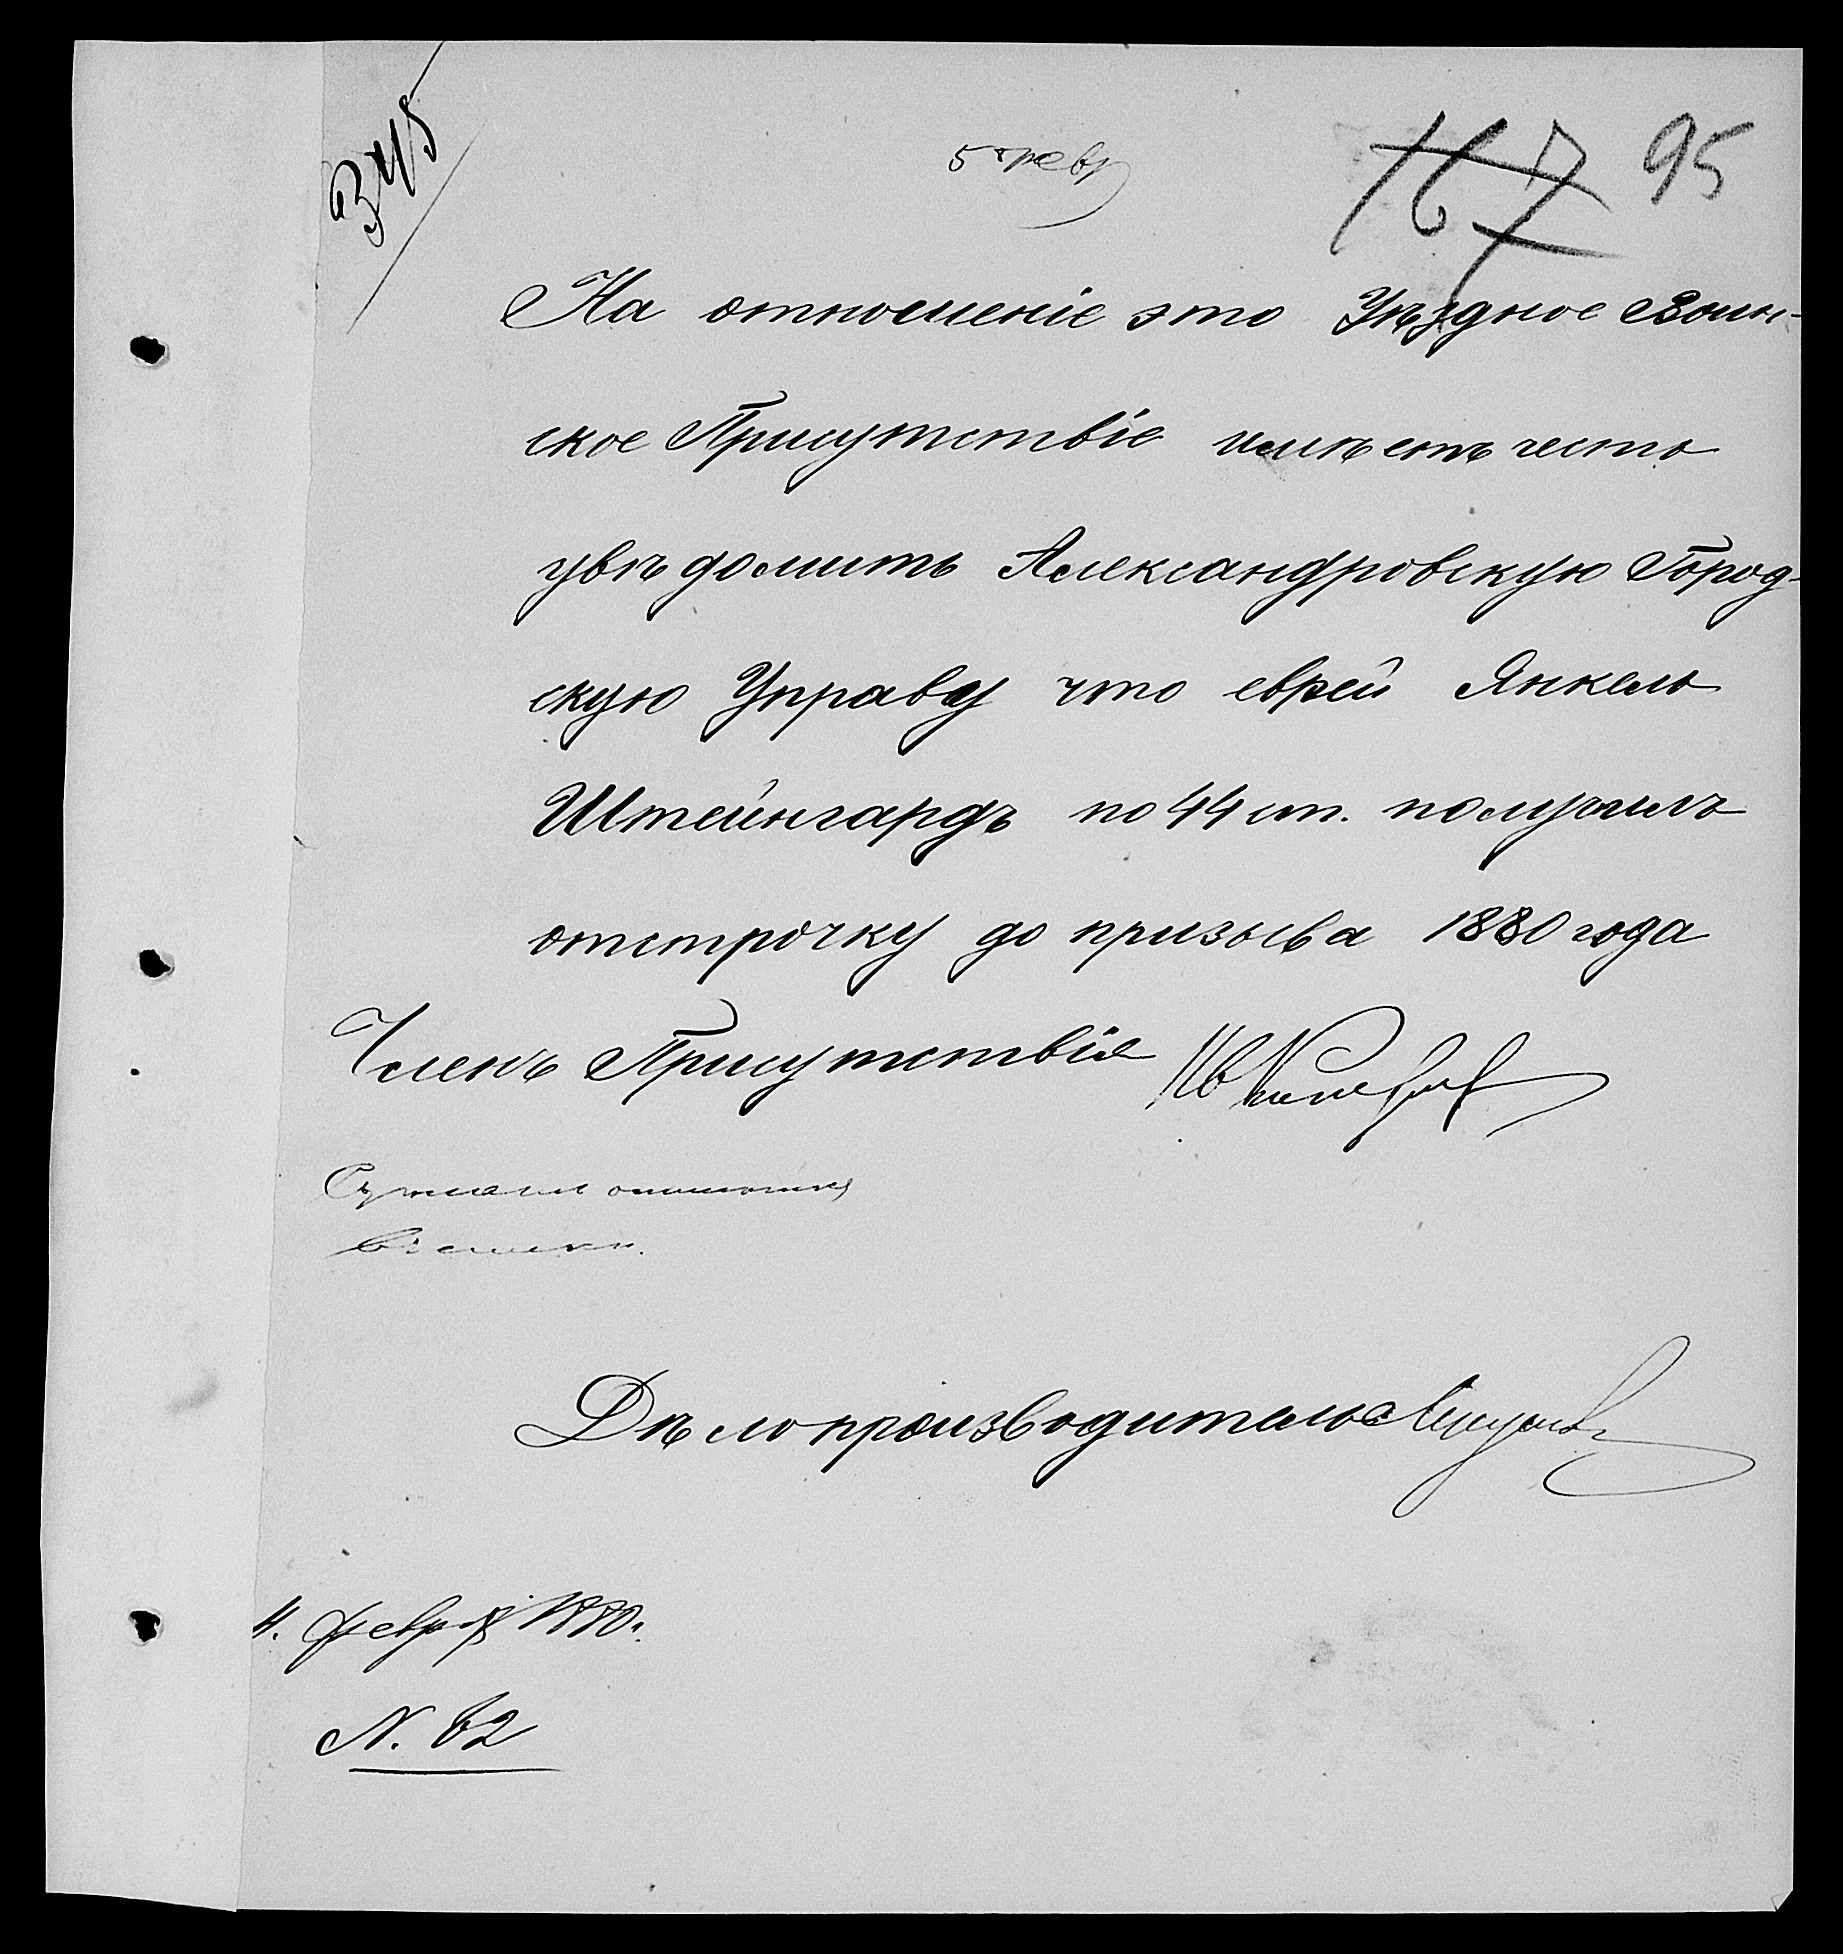 345
5 февр
167 95
На отношеніе это Уѣздное Воин-
ское Присутствіе имѣетъ честь
увѣдомить Александровскую Город-
скую Управу что еврей Янкель
Штейнгардъ по 44 ст. получилъ
отстрочку до призыва 1880 года
Членъ Присутствія
Дѣлопроизводитель
4. февраля 1880.
N. 62